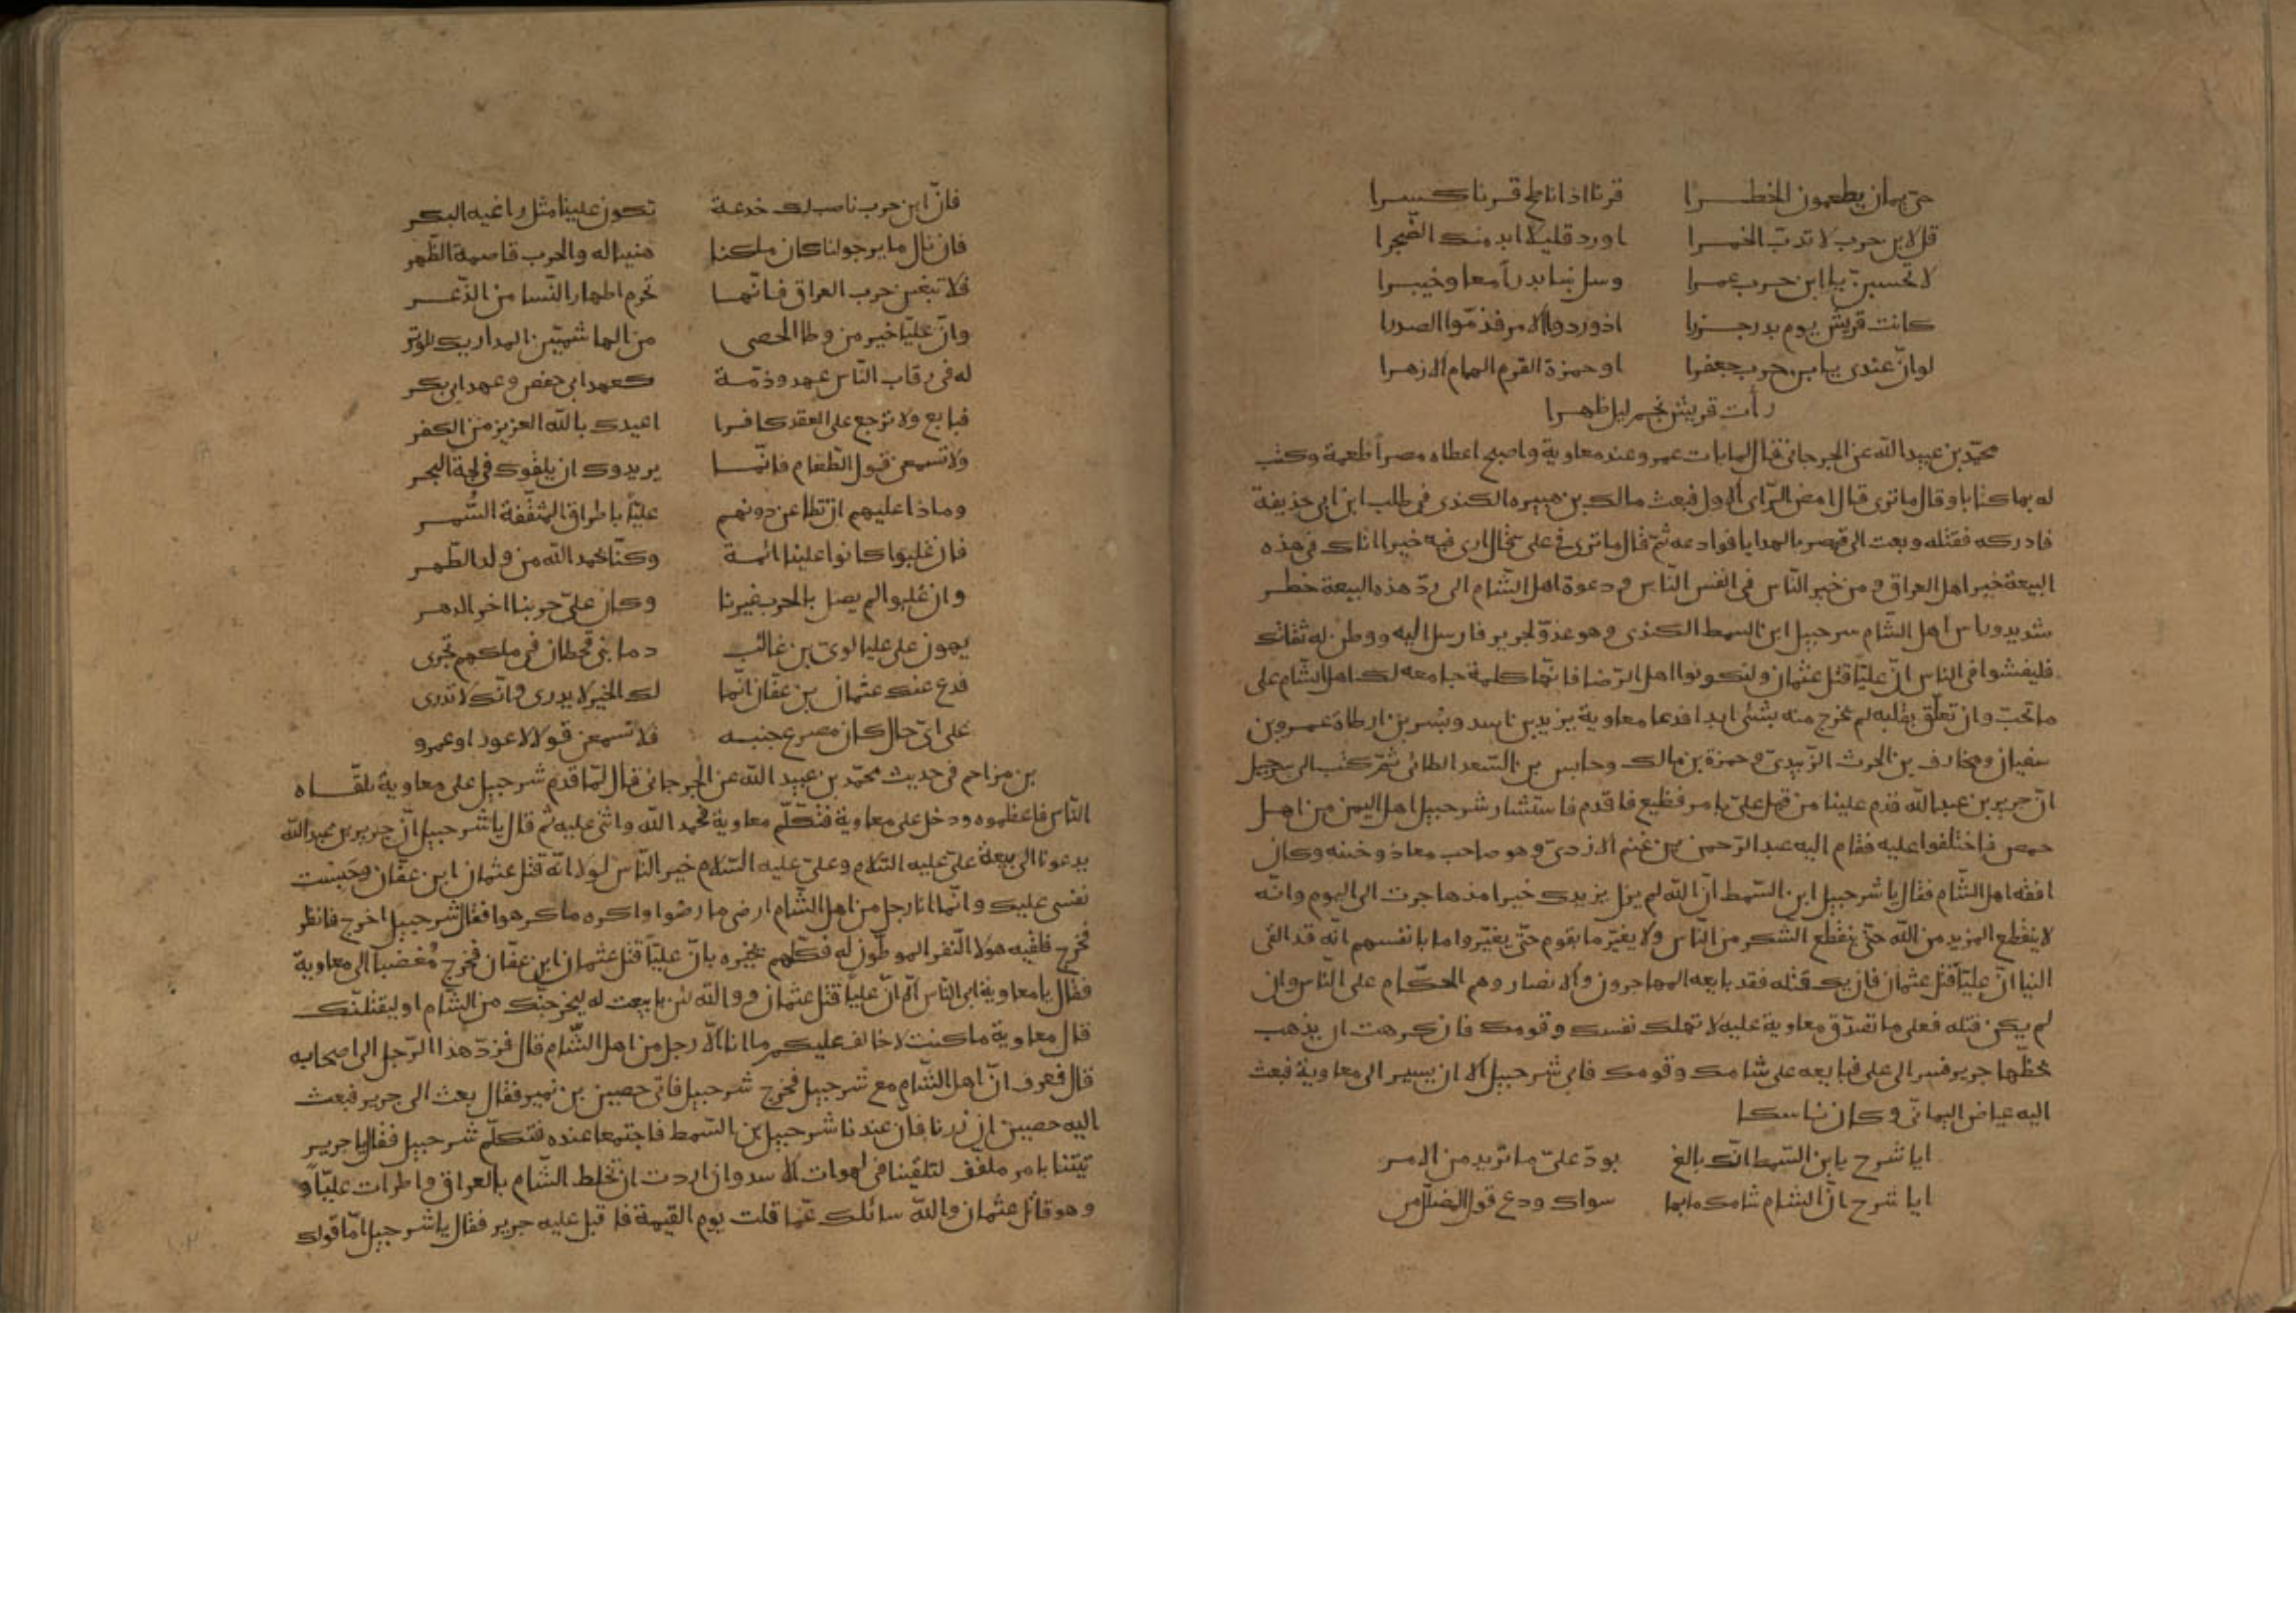 حي يمان يطعمون الخطـــرا قرنا اذا ناطح قـرنا كـسـرا
قل لابن حرب لا تدبّ الخمـرا اورد قليلا ابد منك الضجرا
لا تحسبنّ يا ابن حـرب عمـرا وسل بنا بدرا معا وخيبـرا
كانت قريش يوم بدر جـزرا اذ وردوا الامر فذمّوا الصدرا
لو انّ عندى يا بن حرب جعفرا او حمزة القرم الهمام الازهـرا
رأت قريش نجم ليل ظهـرا
محمّد بن عبيد الله عن الجرجانى قال لما بات عمرو عند معاوية واصبح اعطاه مصراً طعمة وكتب
له بها كتابا وقال ما ترى قال امض الرّاى الاول فبعث مالك بن هبيره الكندى فى طلب ابن ابى حذيفة
فادركه فقتله وبعث الى قيصر بالهدايا فوادعه ثمّ قال ما ترى فى على قال ارى فيه خيرا اتاك فى هذه
البيعة خبر اهل العراق و من خير النّاس فى انفس النّاس و دعوة اهل الشّام الى ردّ هذه البيعة خطـر
شديد وراس اهل الشام سرحبيل ابن السمط الكندى وهو عدوّ لجرير فارسل اليه ووطن له ثقاتك
فليفشوا فى الناس انّ عليّا قتل عثمان وليكونوا اهل الرّضا فانّها كلمة جامعه لك اهل الشّام على
ما تحبّ وان تعلّق بقلبه لم تخرج منه بشئ ابدا فدعا معاوية يزيد بن اسد وبسر بن ارطاة وعمـرو بن
سفيان ومخارف بن الحرث الزّبيدىّ و حمزة بن مالك وحابس بن السّعد الطائى ثمّ كتب الى سرحبيل
انّ جرير بن عبد الله قدم علينا من قبل علىّ بامر فظيع فاقدم فاستشار شرحبيل اهل اليمن من اهـل
حمص فاختلفوا عليه فقام اليه عبد الرّحمن بن غنم الازدىّ وهو صاحب معاذ وختنه وكان
افقه اهل الشّام فقال يا شرحبيل ابن السّمط انّ الله لم يزل يزيدك خيرا مذ هاجرت الى اليوم وانّه
لا ينقطع المزيد من الله حتّى ينقطع الشكر من النّاس ولا يغيّر ما بقوم حتّى يغيّروا ما بانفسهم انّه قد القى
الينا انّ عليّا قتل عثمان فان يك قتله فقد بايعه المهاجرون والانصار وهم الحكّام على النّاس وان
لم يكن قتله فعلى ما تصدّق معاوية عليه لا تهلك نفسك وقومك فان كرهت ان يذهب
بحظّها جرير فسر الى على فبايعه على شامك وقومك فابى شرحبيل الا ان يسير الى معاوية فبعث
اليه عياض اليمانى وكان ناسكا
ايا شرح يا بن السّمط انّك بالغ بودّ علىّ ما تريد من الامـر
ايا شرح انّ الشام شامك ما بها سواك ودع قول المضلّل من
فانّ ابن حرب ناصب لك خدعـة تكون علينا مثل راغيه البكـر
فان نال ما يرجو لنا كان ملكنا هنيئا له والحرب قاصمة الظّهر
فلا تبغين حرب العراق فـانّهـا تحرم اطهار النّسا من الذّعـر
وانّ عليّا خير من وطا الحصى من الهاشميّين المداريك للوتر
له فى رقاب النّاس عهد وذمّـة كعهد ابى حفص وعهد ابى بكـر
فبايع ولا ترجع على العقد كافـرا اعيدك بالله العزيز من الكفر
ولا تسمعن قول الطّغام فانّهـا يريدوك ان يلقوك فى لجة البحـر
وماذا عليهم ان تطاعن دونهم عليّا باطراق المثقّفة السُّمـر
فان غلبوا كانوا علينا ائمـة وكنّا بحمد الله من ولد الطّهـر
وان غلبوا لم يصل بالحرب غيرنا وكان علىّ حربنا اخر الدهـر
يهون على عليا لوىّ بن غالب دما بنى قحطان فى ملكهم تجرى
فدع عنك عثمان بن عفّان انّما لك الخير لا يدرى وانّك لا تدرى
على اىّ حال كان مصرع جنبـه فلا تسمعن قولا لاعور او عمرو
بن مزاحم فى حديث محمّد بن عبيد الله عن الجرجانى قال لمّا قدم شرحبيل على معاوية تلقّـاه
النّاس فاعظموه ودخل على معاوية فتكلّم معاوية فحمد الله واثنى عليه ثم قال يا شرحبيل انّ جرير بن عبد الله
يدعونا الى بيعة علىّ عليه السّلام وعلىّ عليه السّلام خير النّاس لولا انّه قتل عثمان ابن عفّان وحبست
نفسى عليك وانّما انا رجل من اهل الشّام ارضى ما رضوا واكره ما كرهوا فقال شرحبيل اخرج فانظر
فخرج فلقيه هولا النّفر الموطّون له فكلّهم يخبره بانّ عليّا قتل عثمان ابن عفّان فخرج مُغضبا الى معاوية
فقال يا معاوية ابى النّاس الّا انّ عليّا قتل عثمان و والله لئن بايعت له ليخرجنّك من الشّام او ليقتلنّك
قال معاوية ما كنت لاخالف عليكم ما انا الّا رجل من اهل الشّام قال فردّ هذا الرّجل الى اصحابه
قال فعرف انّ اهل الشّام مع شرحبيل فخرج شرحبيل فاتى حصين بن نمير فقال بعث الى جرير فبعث
اليه حصين ان زرنا فان عندنا شرحبيل بن السّمط فاجتمعا عنده فتكلّم شرحبيل فقال يا جريـر
تيتنا بامر ملفّف لتلقينا فى لهوات الاسد وان اردت ان تخلط الشّام بالعراق واطرات عليّا و
وهو قاتل عثمان والله سائلك عمّا قلت يوم القيمة فاقبل عليه جرير فقال يا شرحبيل امّا قولك